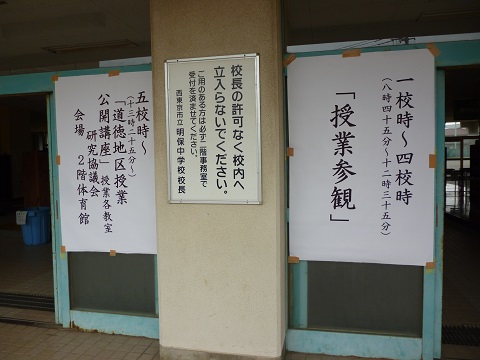 一校時～四校時
（八時四十五分～十二時三十五分）
「授業参観」
校長の許可なく校内へ
立入らないでください。
ご用のある方は必ず二階事務室で
受付を済ませてください。
西東京市立明保中学校校長
五校時～
（十三時二十五分～）
「道徳地区授業
公開講座」授業各教室
研究協議会
会場　２階体育館